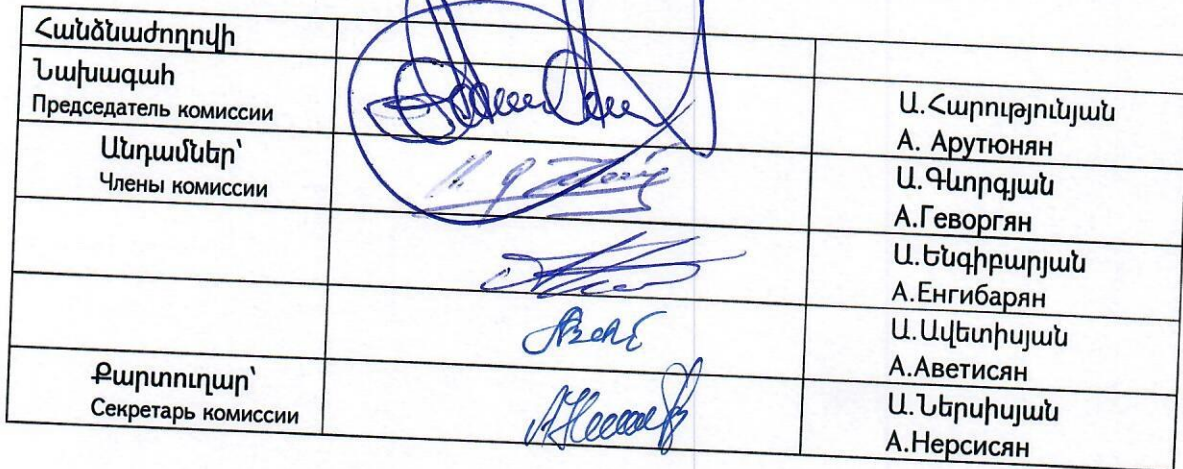 Հանձնաժողովի
Նախագահ
Председатель комиссии
Ա.Հարությունյան
А. Арутюнян
Անդամներ՝
Члены комиссии
Ա.Գևորգյան
А.Геворгян
Ա.Ենգիբարյան
А.Енгибарян
Ա.Ավետիսյան
А.Аветисян
Քարտուղար՝
Секретарь комиссии
Ա.Ներսիսյան
А.Нерсисян